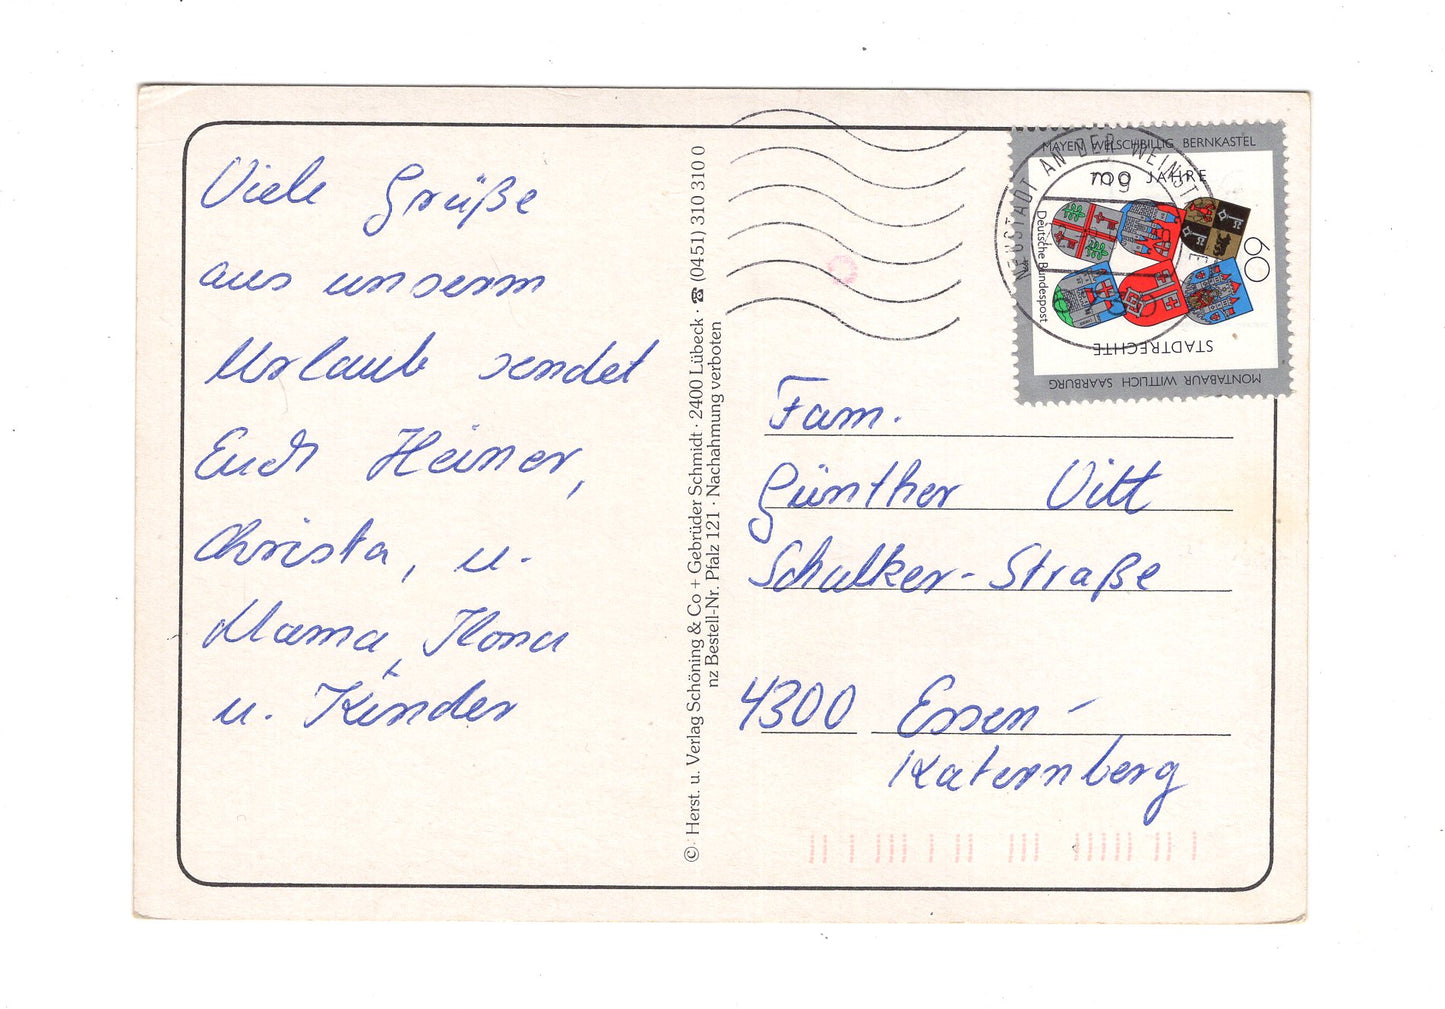 Viele Grüße
aus unserm
Urlaub sendet
Euch Heiner,
Christa, u.
Mama, Ilona
u. Kinder
© Herst. u. Verlag Schöning & Co + Gebrüder Schmidt · 2400 Lübeck · ☎ (0451) 310 310 0
nz Bestell-Nr. Pfalz 121 · Nachahmung verboten
NEUSTADT AN DER WEINST
mg
MAYEN WELSCHBILLIG BERNKASTEL
700 JAHRE
60
Deutsche Bundespost
STADTRECHTE
MONTABAUR WITTLICH SAARBURG
Fam.
Günther Vitt
Schalker-Straße
4300 Essen-
Katernberg